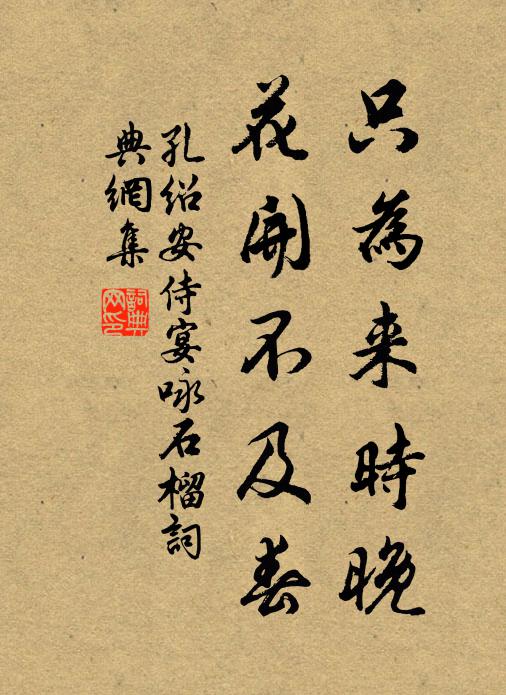 只為来時晚
花開不及春
孔紹安侍宴咏石榴詞
典網集
詞典
网印